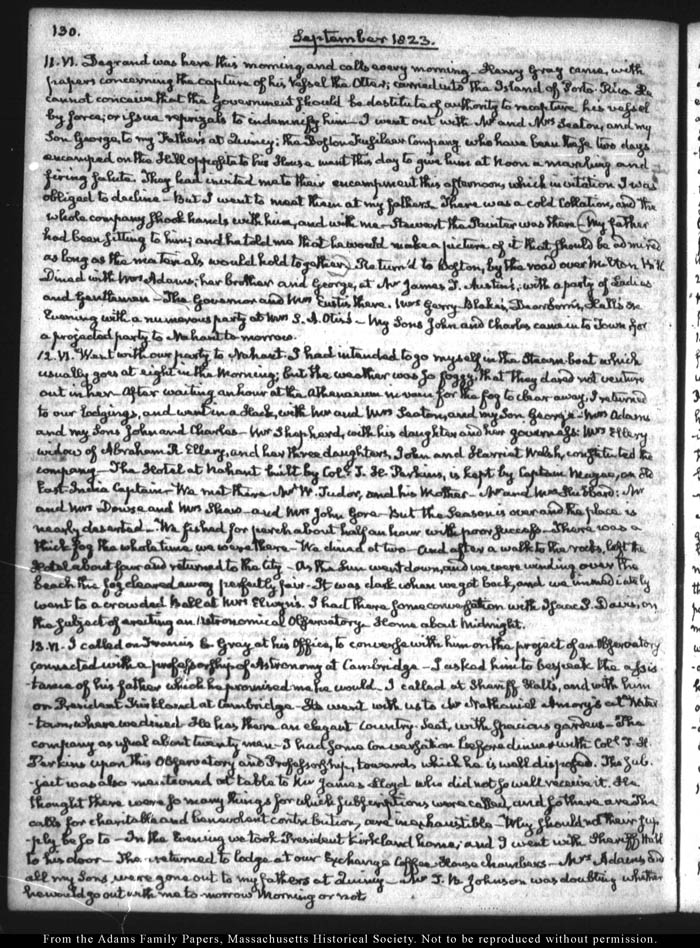 130.
September 1823.
11. VI. Degrand was here this morning and calls every morning. Henry Gray came, with
papers concerning the capture of his Vessel the Otter; carried into the Island of Porto-Rico. He
cannot conceive that the Government should be destitute of authority to recapture his vessel
by force; or issue reprizals to indemnify him — I went out with Mr and Mrs Seaton, and my
Son George, to my Father's at Quincy; the Boston Fusileer Company who have been these two days
encamped on the Hill opposite to his House went this day to give him at Noon a marching and
firing salute. They had invited me to their encampment this afternoon, which invitation I was
obliged to decline — But I went to meet them at my father's. There was a cold Collation, and the
whole company shook hands with him, and with me — Stewart the Painter was there — My father
had been sitting to him; and he told me that he would make a picture of it that should be admired
as long as the materials would hold together. Return'd to Boston, by the road over Milton Hill
Dined with Mrs Adams, her brother and George, at Mr James T. Austin's; with a party of Ladies
and Gentlemen — The Governor and Mrs Eustis there. Mrs Gerry, Blake, Dearborn, Halls &c
Evening with a numerous party at Mrs S. A. Otis's — My Sons John and Charles came in to Town for
a projected party to Nahant to-morrow.
12. VI. Went with our party to Nahant. I had intended to go myself in the Steam-boat which
usually goes at eight in the Morning; but the weather was so foggy, that they dared not venture
out in her — After waiting an hour at the Athenaeum in vain for the fog to clear away, I returned
to our lodgings, and went in a Hack, with Mr and Mrs Seaton, and my Son George — Mrs Adams
and my Sons John and Charles — Mr Shephard, with his daughter and her governess: Mrs Ellery
widow of Abraham R. Ellery, and her three daughters, John and Harriet Welsh, constituted the
company — The Hotel at Nahant built by Coll. T. H. Perkins, is kept by Captain Magee, an old
East-India Captain — We met there Mr W. Tudor, and his Mother — Mr and Mrs Hubbard: Mr
and Mrs Dowse and Mrs Shaw — and Mrs John Gore — But the Season is over and the place is
nearly deserted — We fished for perch about half an hour with poor success — There was a
thick fog the whole time we were there — We dined at two — And after a walk to the rocks, left the
Hotel about four and returned to the City — As the Sun went down, and we were winding over the
beach the fog cleared away perfectly fair — It was dark when we got back, and we immediately
went to a crowded Ball at Mrs Elwyn's. I had there some conversation with Isaac P. Davis, on
the subject of erecting an Astronomical Observatory — Home about midnight.
13. VI. I called on Francis C. Gray at his Office, to converse with him on the project of an Observatory
connected with a professorship of Astronomy at Cambridge — I asked him to bespeak the assis
-tance of his father which he promised me he would. I called at Sheriff Hall's, and with him
on President Kirkland at Cambridge — He went with us to Mr Nathaniel Amory's at Water
-town, where we dined — He has there an elegant Country Seat, with spacious gardens — The
company as usual about twenty men — I had some conversation before dinner with Coll. T. H.
Perkins upon this Observatory and Professorship, towards which he is well disposed. The sub-
-ject was also mentioned at table to Mr James Lloyd who did not so well receive it. He
thought there were so many things for which subscriptions were called, and so there are. The
calls for charitable and benevolent contribution, are inexhaustible — Why should not their sup
-ply be so to — In the Evening we took President Kirkland home; and I went with Sheriff Hall
to his door — The returned to lodge at our Exchange Coffee-House chambers — Mrs Adams and
all my Sons were gone out to my father's at Quincy — Mr T. B. Johnson was doubting whether
he would go out with me to morrow Morning or not
From the Adams Family Papers, Massachusetts Historical Society. Not to be reproduced without permission.